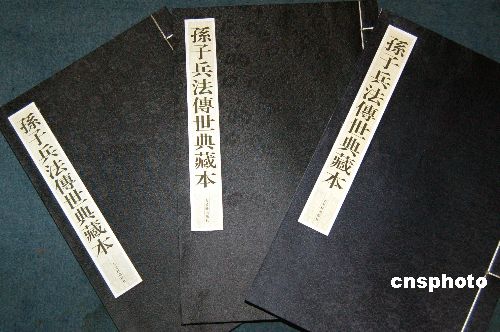 孫子兵法傳世典藏本
孫子兵法傳世典藏本
孫子兵法傳世典藏本
cnsphoto